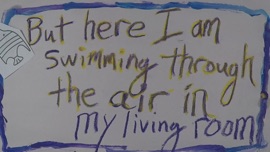 But here I am
swimming through
the air in
my living room